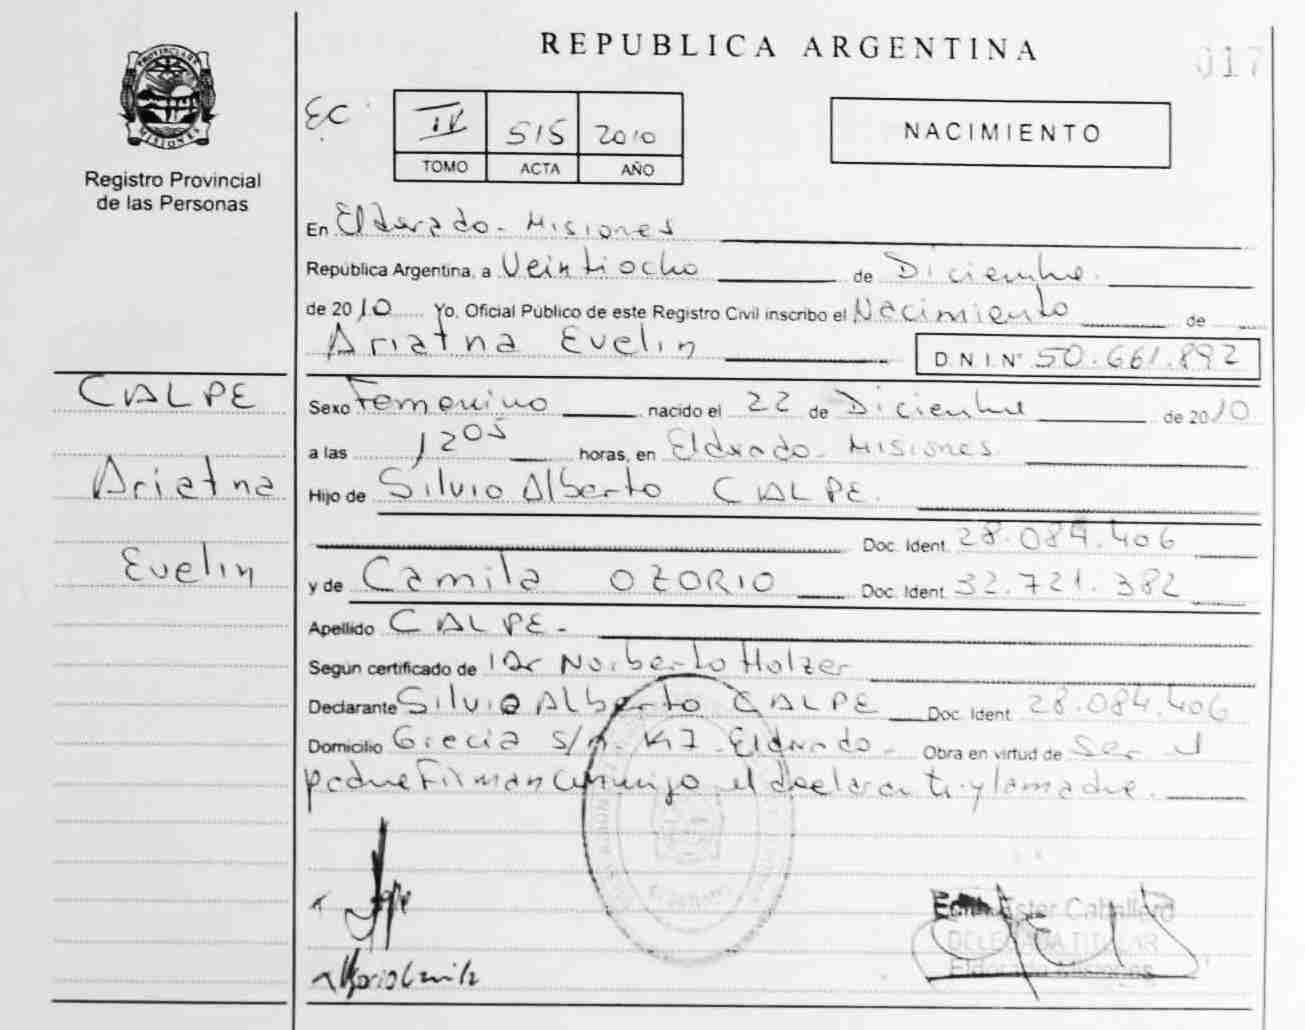 REPUBLICA ARGENTINA
017
PROVINCIA DE MISIONES
Registro Provincial
de las Personas
EC
IV 515 2010
TOMO ACTA AÑO
NACIMIENTO
En Eldorado - Misiones
República Argentina, a Veintiocho de Diciembre
de 2010 Yo, Oficial Público de este Registro Civil inscribo el Nacimiento de
Ariatna Evelin D.N.I.Nº 50.661.892
CALPE
Ariatna
Evelin
Sexo Femenino nacido el 22 de Diciembre de 2010
a las 1205 horas, en Eldorado - Misiones
Hijo de Silvio Alberto CALPE
Doc. Ident. 28.084.406
y de Camila OZORIO Doc. Ident. 32.721.382
Apellido CALPE -
Según certificado de Dr Norberto Holzer
Declarante Silvio Alberto CALPE Doc. Ident. 28.084.406
Domicilio Grecia s/n. K7 - Eldorado - Obra en virtud de ser el
padre Firman conmigo el declarante y la madre.
Ester Caballero
DELEGADA TITULAR
Eldorado Misiones